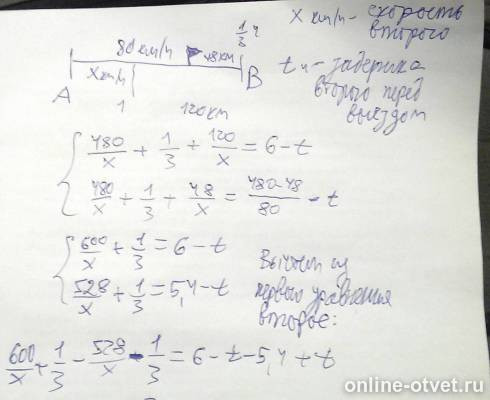 1/3 ч
x км/ч - скорость
второго
80 км/ч
48 км
x км/ч
t ч - задержка
второго перед
выездом
A
B
1
120 км
480/x + 1/3 + 120/x = 6 - t
480/x + 1/3 + 48/x = 480-48/80 - t
600/x + 1/3 = 6 - t
528/x + 1/3 = 5,4 - t
Вычтем из
первого уравнения
второе:
600/x + 1/3 - 528/x - 1/3 = 6 - t - 5,4 + t
online-otvet.ru